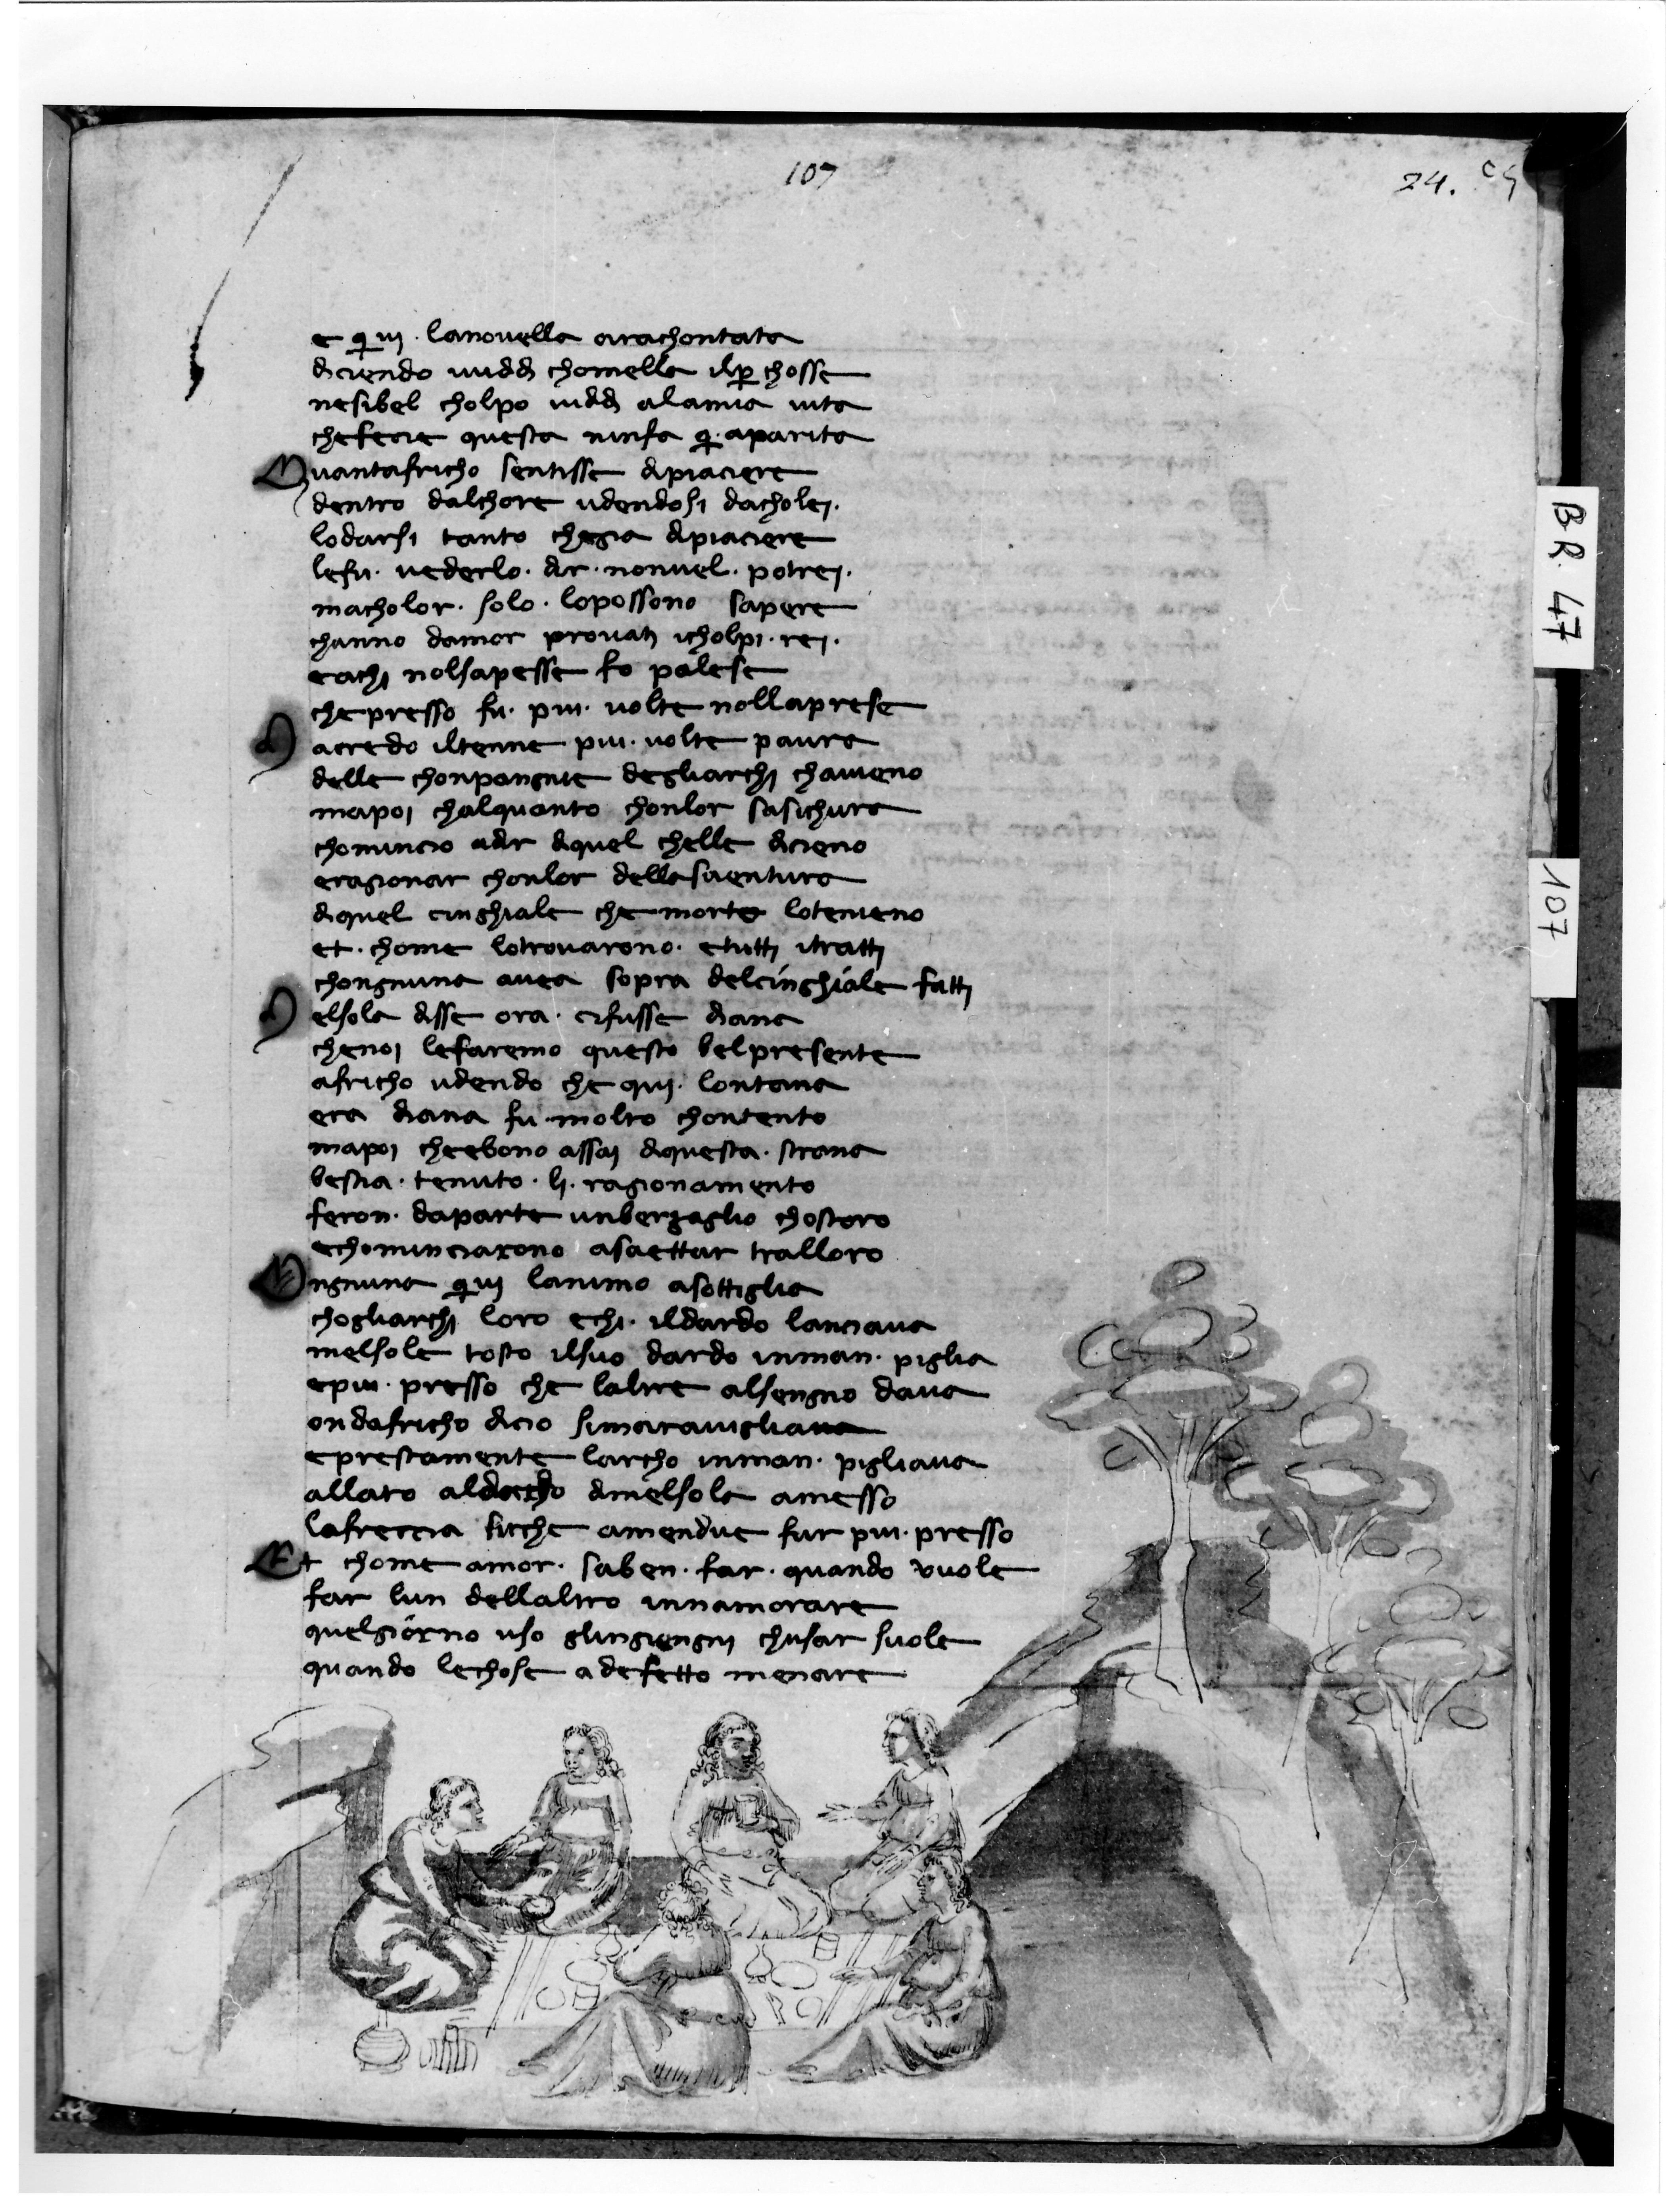 107
24.
e quivi lanovella arachontata
diciendo vividi chomella il per chosse
nesibel cholpo vididi alamia vita
chefecie questa ninfa qui aparita
Quantafricho sentisse dipiaciere
dentro dalchore udendosi dacholej.
lodarsi tanto chegia dipiaciere
lefu. vederlo. dir. nonvel. potrej.
macholor. solo. lopossono sapere
channo damor provati icholpi. rej.
eachi nolsapesse fo palese
chepresso fu. piu. volte nollaprese
acredo iltenne piu. volte paura
delle chonpangnie degliarchi chavieno
mapoj chalquanto chonlor sasichura
chomincio adir diquel chelle dicieno
eragionar chonlor della sventura
diquel cinghiale che morto lotenieno
et. chome lotrovarono. etutti itratti
chongnuna avea sopra delcinghiale fatti
elsola disse ora. cifusse diana
chenoj lefaremo questo belpresente
africho udendo che quj. lontana
era diana fu. molto chontento
mapoj cheebono assaj diquesta. strana
bestia. tenuto. li. ragionamento
feron. daparte unberzaglio chostoro
echominciarono asaettar tralloro
Ongnuna quivi lanimo asottiglia
chogliarchi loro echi. ildardo lanciava
melsole tosto ilsuo dardo inman. piglia
epiu. presso che laltre alsengno dava
ondafricho dicio simaravigliava
eprestamente larcho inman. pigliava
allato aldardo dimelsola amesso
lafreccia sicche amendue fur piu. presso
Et chome amor. saben. far. quando vuole
far lun dellaltro innamorare
quelgiorno uso glingiengni chusar suole
quando lechose adefetto menare
BR 47
107